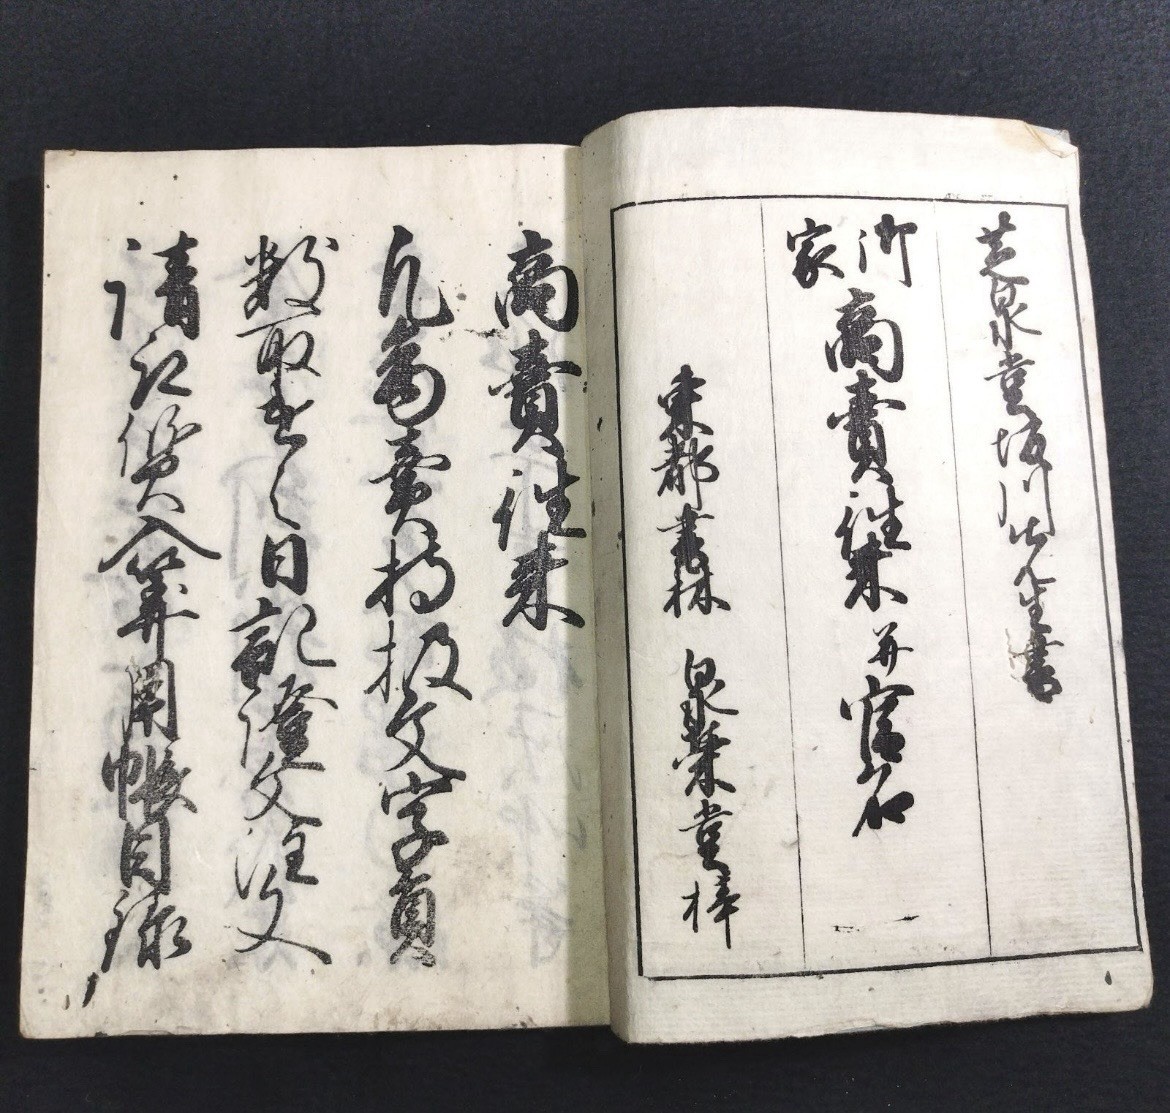 芝泉堂坂川先生書
御家 商賣往来 并官名
東都書林 泉榮堂梓
商賣往来
凡商賣持扱文字員
数取遣之日記證文注文
請取質入算用帳目録